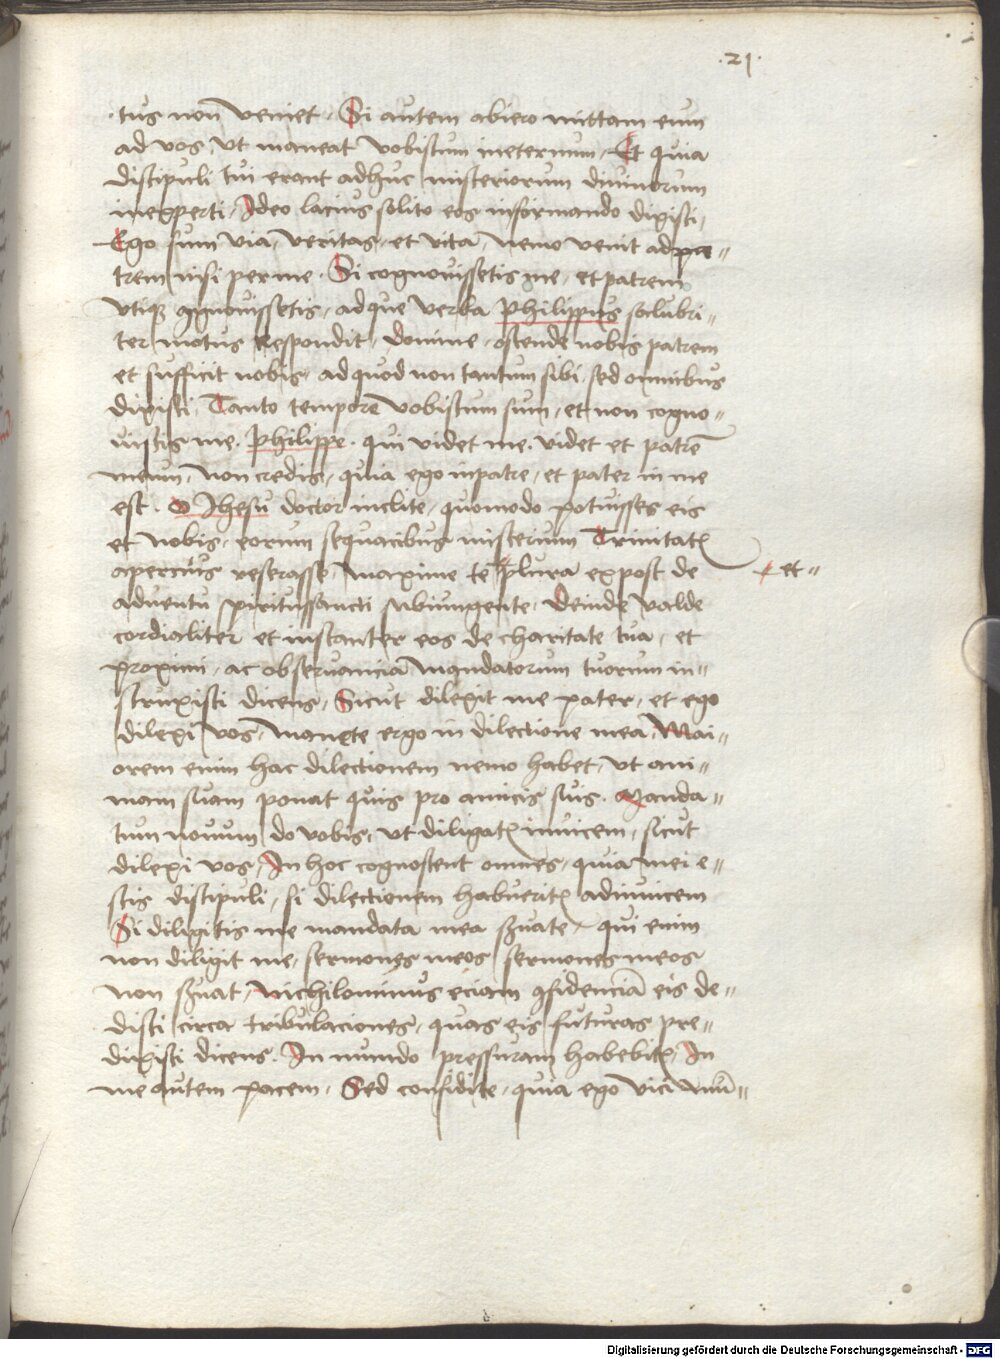 ·21·
tus non veniet. Si autem abiero mittam eum
ad vos, vt maneat vobiscum ineternum, Et quia
discipuli tui erant adhuc misteriorum diuinorum
inexperti, Ideo lacius solito eos informando dixisti,
Ego sum via, veritas, et vita, nemo venit ad pa〃
trem nisi per me. Si cognouissetis me, et patrem
vtiqȝ ꝯgnouissetis, ad que verba Philippus salubri〃
ter motus respondit, domine, ostende nobis patrem
et sufficit nobis, ad quod non tantum sibi, sed omnibus
dixisti, Tanto tempore vobiscum sum, et non cogno〃
uistis me. Philippe. qui videt me. videt et patrē
meum, non credis, quia ego in patre, et pater in me
est. O Ihesu doctor inclite, quomodo potuisses eis
et nobis, eorum sequacibus misterium Trinitatꝭ
apercius reserasse, maxime te plura expost de
et〃
aduentu spiritussancti subiungente. Deinde valde
cordialiter et instanter eos de charitate tua, et
proximi, ac obseruanciā mandatorum tuorum in〃
struxisti dicens, Sicut dilexit me pater, et ego
dilexi vos, manete ergo in dilectione mea, Mai〃
orem enim hac dilectionem nemo habet, vt ani〃
mam suam ponat quis pro amicis suis. Manda〃
tum nouum do vobis, vt diligatꝭ inuicem, sicut
dilexi vos, In hoc cognoscent omnes, quia mei e〃
stis discipuli, si dilectionem habueritꝭ adinuicem
Si diligitis me mandata mea ẜuate, qui enim
non diligit me, sermones meos sermones meos
non ẜuat, nichilominus eciam ꝯfidenciā eis de〃
disti circa tribulaciones, quas eis futuras pre〃
dixisti dicens. In mundo pressuram habebitꝭ, In
me autem pacem, Sed confidite, quia ego vici mū〃
Digitalisierung gefördert durch die Deutsche Forschungsgemeinschaft - DFG